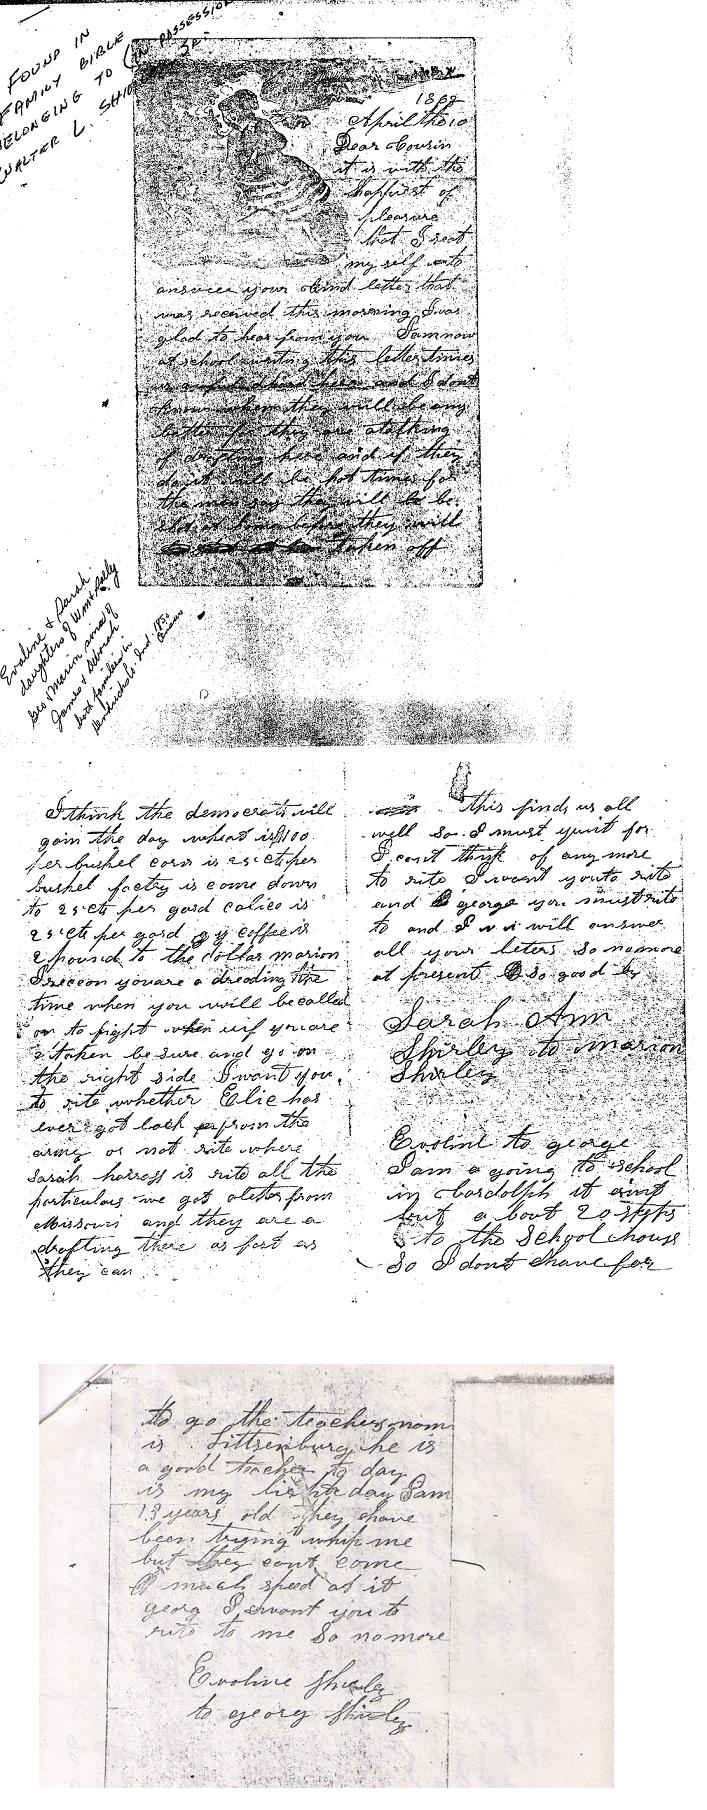 FOUND IN
FAMILY BIBLE
BELONGING TO (IN POSSESSION
WALTER L. SHIRLEY SR.
April the 10
Dear Cousin
it is with the
happiest of
pleasure
that I seat
my self to
answer your kind letter that
was received this morning I was
glad to hear from you I am now
at school writing this letter times
is awful hard here and I dont
know when they will be any
better for they are a talking
of drafting here and if they
do it will be hot times for
the men say they will be
shot at home before they will
taken off
Eveline & Sarah
daughters of Wm & Polly
Geo & Marion sons of
James & Deborah
both families in
Hendricks Co. Ind. 1850
Census
I think the democrats will
gain the day wheat is $1.00
per bushel corn is 25 cts per
bushel factry is come down
to 25 cts per yard calico is
25 cts per yard coffee is
2 pound to the dollar marion
I reccon you are a dreading the
time when you will be called
on to fight if you are
a taken be sure and go on
the right side I want you
to rite whether Elic has
ever got back from the
army or not rite where
Sarah is rite all the
particulars we got a letter from
Missouri and they are a
drafting there as fast as
they can
this finds us all
well so I must quit for
I cant think of any more
to rite I want you to rite
and george you must rite
to and I will answer
all your leters So no more
at present So good by
Sarah Ann
Shirley to marion
Shirley
Evoline to george
I am a going to school
in bardolph it aint
but a bout 20 steps
to the School hous
So I dont have far
to go the teachers nam
is he is
a good teacher to day
is my birth day I am
13 years old they have
been trying whip me
but they cant come
much speed at it
georg I want you to
rite to me So no more
Evoline Shirley
to georg Shirley